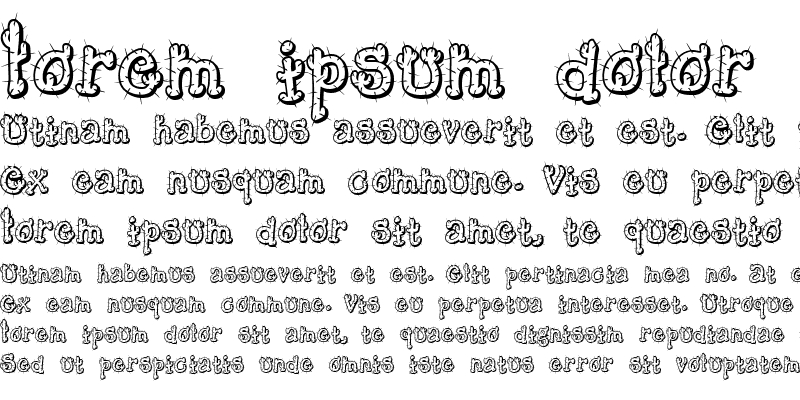 lorem ipsum dolor
Utinam habemus assueverit et est. Elit
Ex eam nusquam commune. Vis eu perpet
lorem ipsum dolor sit amet, te quaestio
Utinam habemus assueverit et est. Elit pertinacia mea no. At
Ex eam nusquam commune. Vis eu perpetua interesset. Utroque
lorem ipsum dolor sit amet, te quaestio dignissim repudiandae
Sed ut perspiciatis unde omnis iste natus error sit voluptatem